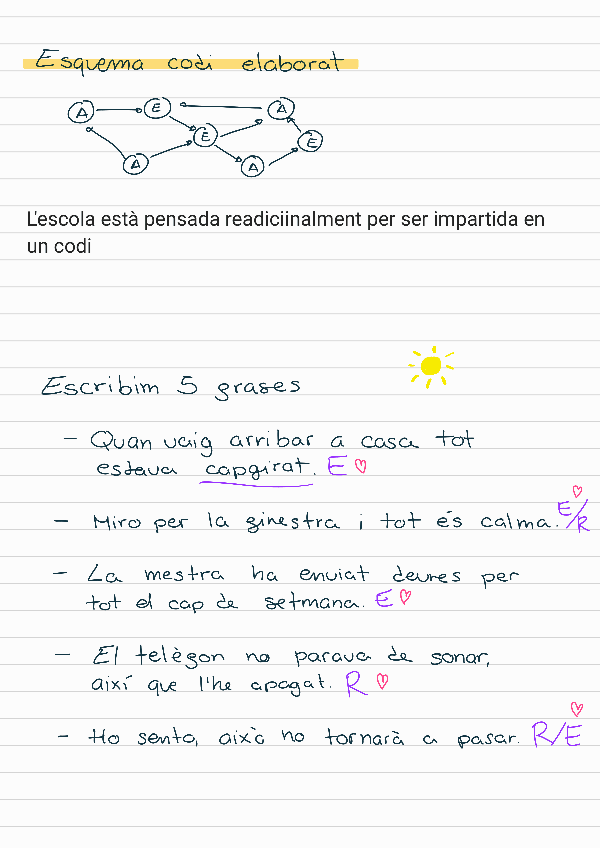 Esquema codi elaborat
A E A
E E
A A
L'escola està pensada readiciinalment per ser impartida en
un codi
Escribim 5 frases
- Quan vaig arribar a casa tot
estava capgirat. E
- Miro per la finestra i tot és calma. E/R
- La mestra ha enviat deures per
tot el cap de setmana. E
- El telèfon no parava de sonar,
així que l'he apagat. R
- Ho sento, això no tornarà a pasar. R/E